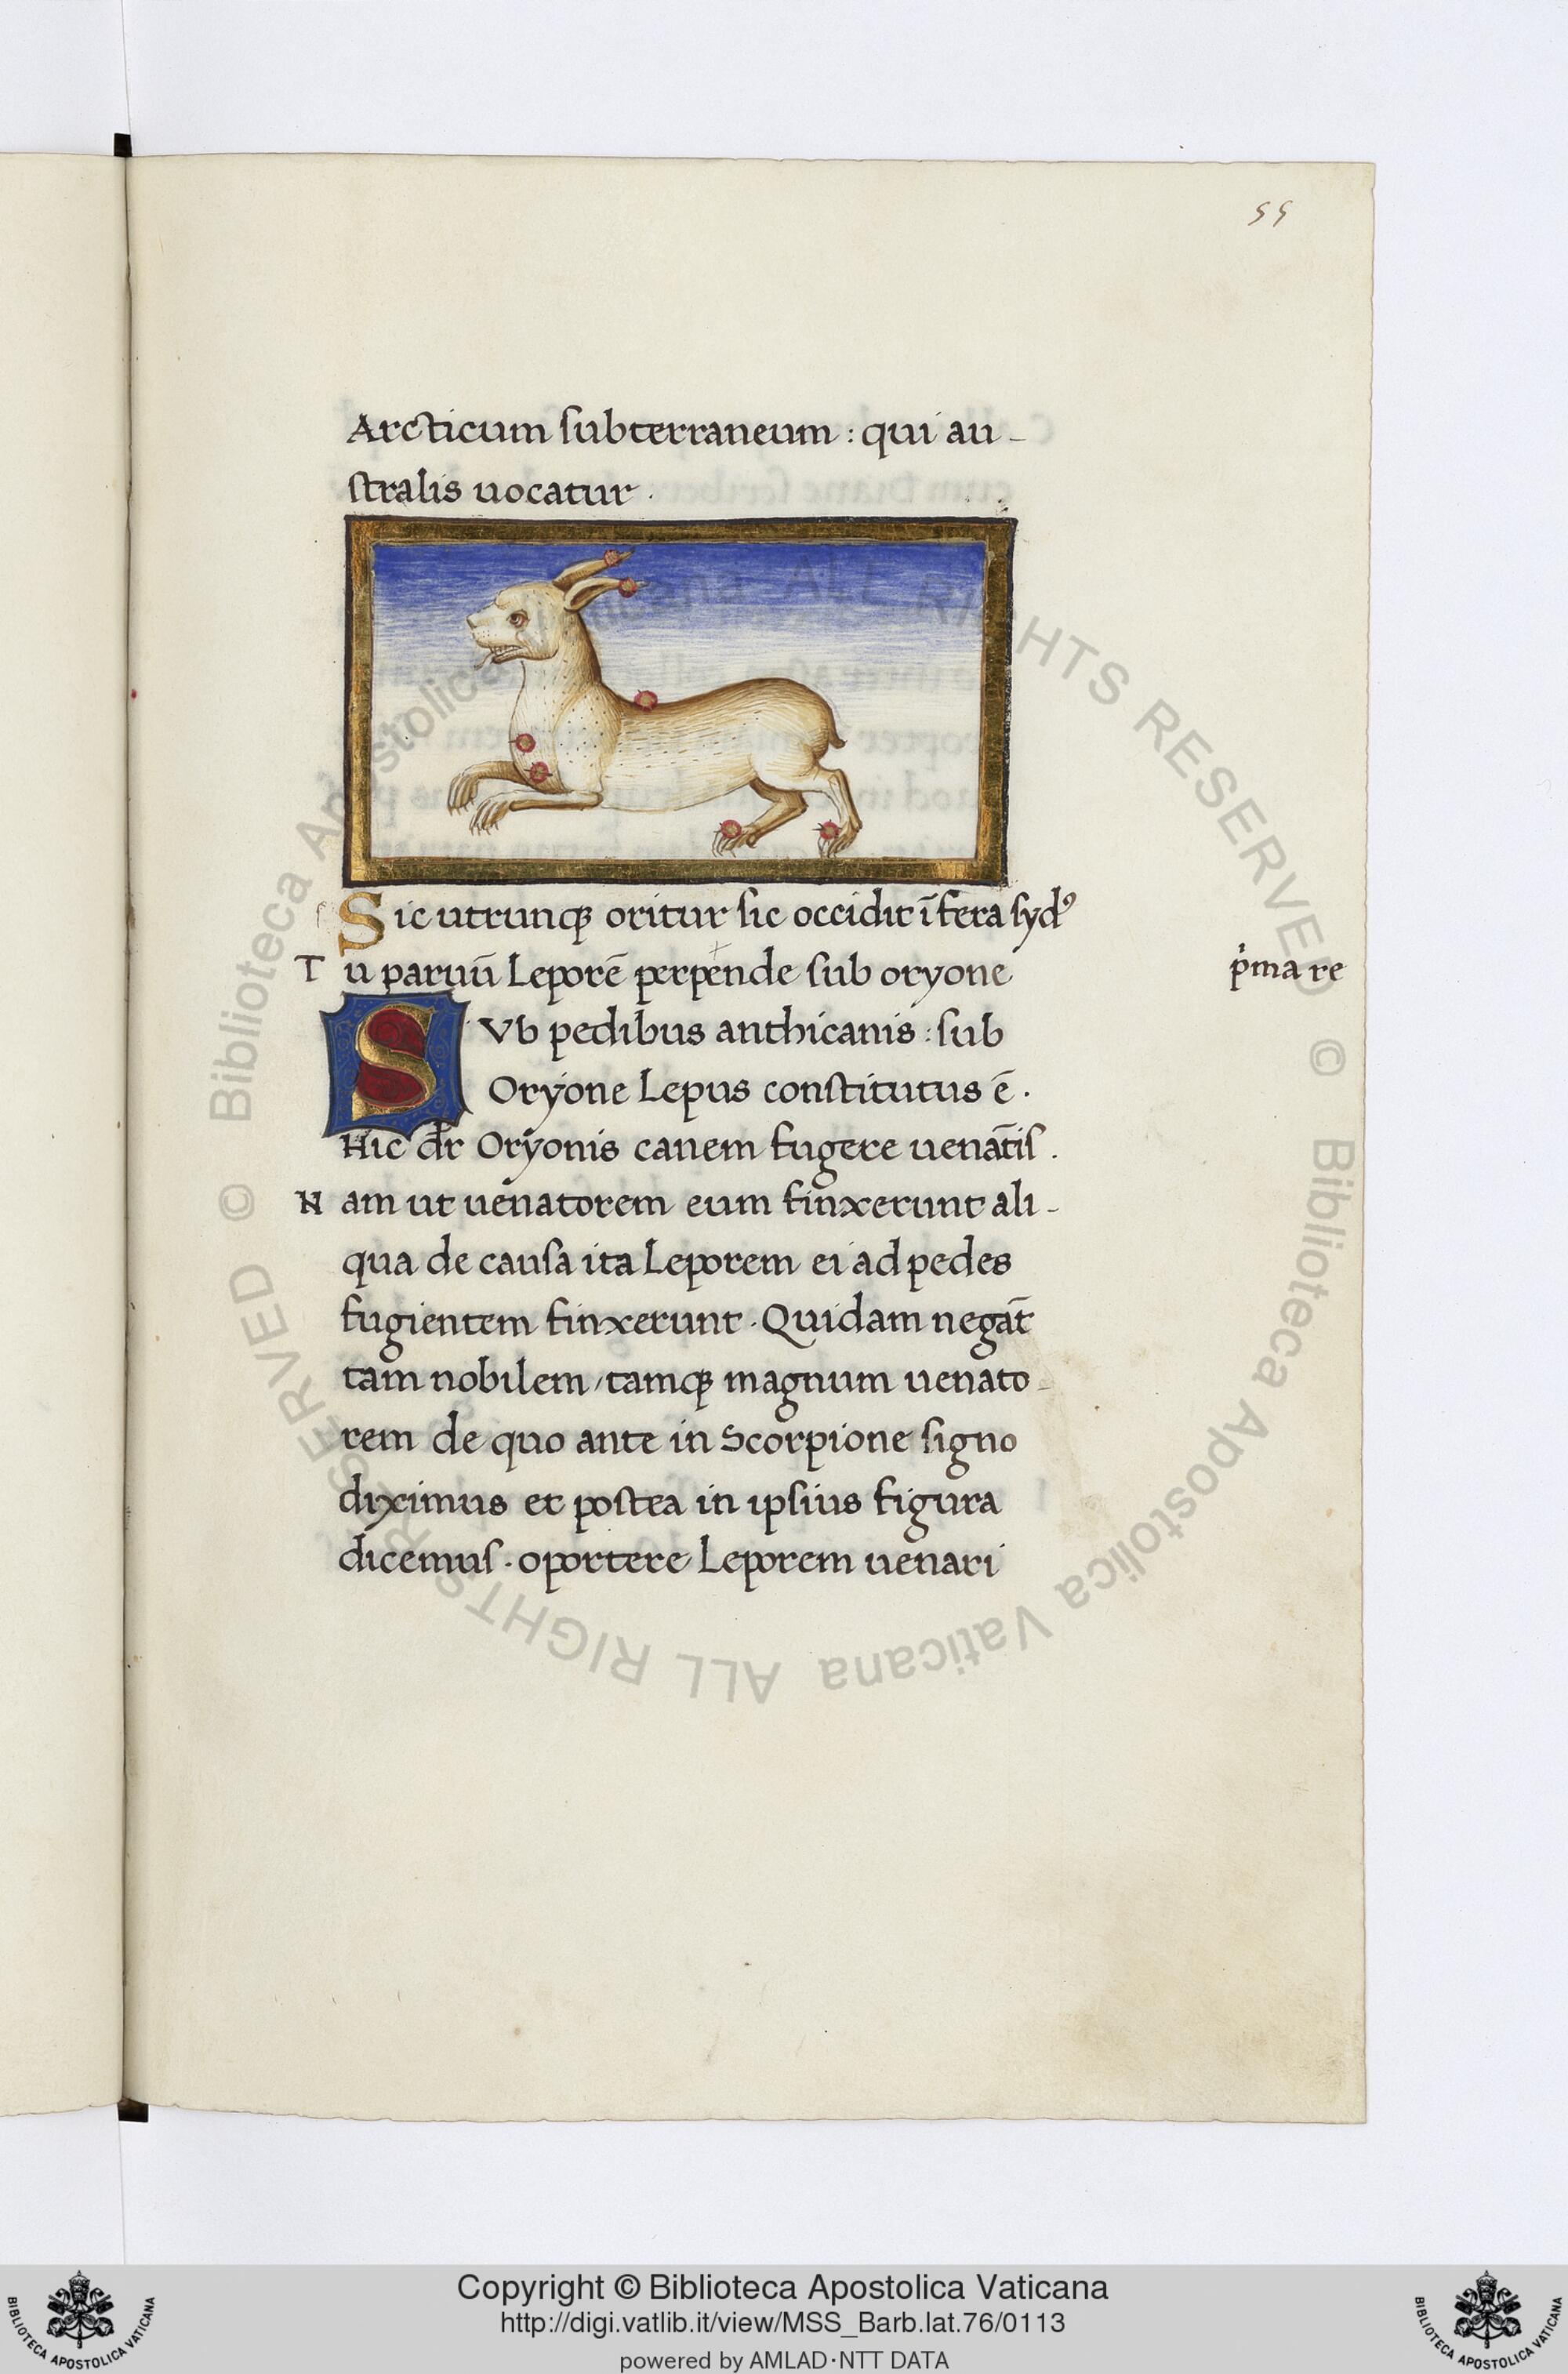 55
Arcticum subterraneum : qui au-
stralis uocatur.
Sic utrunq; oritur sic occidit ī fera sydꝰ
Tu paruū Leporē perpende sub oryone
p̓ma re
SVb pedibus anthicanis : sub
Oryone Lepus constitutus ē.
Hic dr̄ Oryonis canem fugere uenātis.
Nam ut uenatorem eum finxerunt ali-
qua de causa ita Leporem ei ad pedes
fugientem finxerunt. Quidam negāt
tam nobilem / tamq; magnum uenato-
rem de quo ante in Scorpione signo
diximus et postea in ipsius figura
dicemus. oportere Leporem uenari
© Biblioteca Apostolica Vaticana ALL RIGHTS RESERVED
© Biblioteca Apostolica Vaticana ALL RIGHTS RESERVED
Copyright © Biblioteca Apostolica Vaticana
http://digi.vatlib.it/view/MSS_Barb.lat.76/0113
powered by AMLAD·NTT DATA
BIBLIOTECA APOSTOLICA VATICANA
BIBLIOTECA APOSTOLICA VATICANA